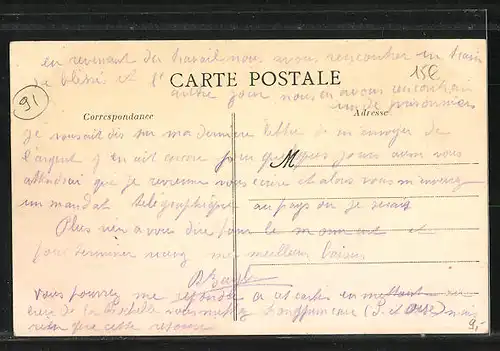 en revenant du travail nous avons rencontrer un train
de blessé et l'
autre jour nous en avons rencontrer
un de prisonniers
15E
91
CARTE POSTALE
Correspondance
Adresse
M
je vous ait dis sur ma dernière lettre de m'envoyer de
l'argent j'en ait encore pour quelques jours aussi vous
attendrai que je revienne vous écrire et alors vous m'enverrez
un mandat télégraphique au pays ou je serais
Plus rien a vous dire pour le moment et
pour terminer recevez me meilleurs baisers
vous pourrez me répondre a cet cartes en mettant
vous mettez Longjumeau (S. et Oise) mais
rien que cette réponse
9,-